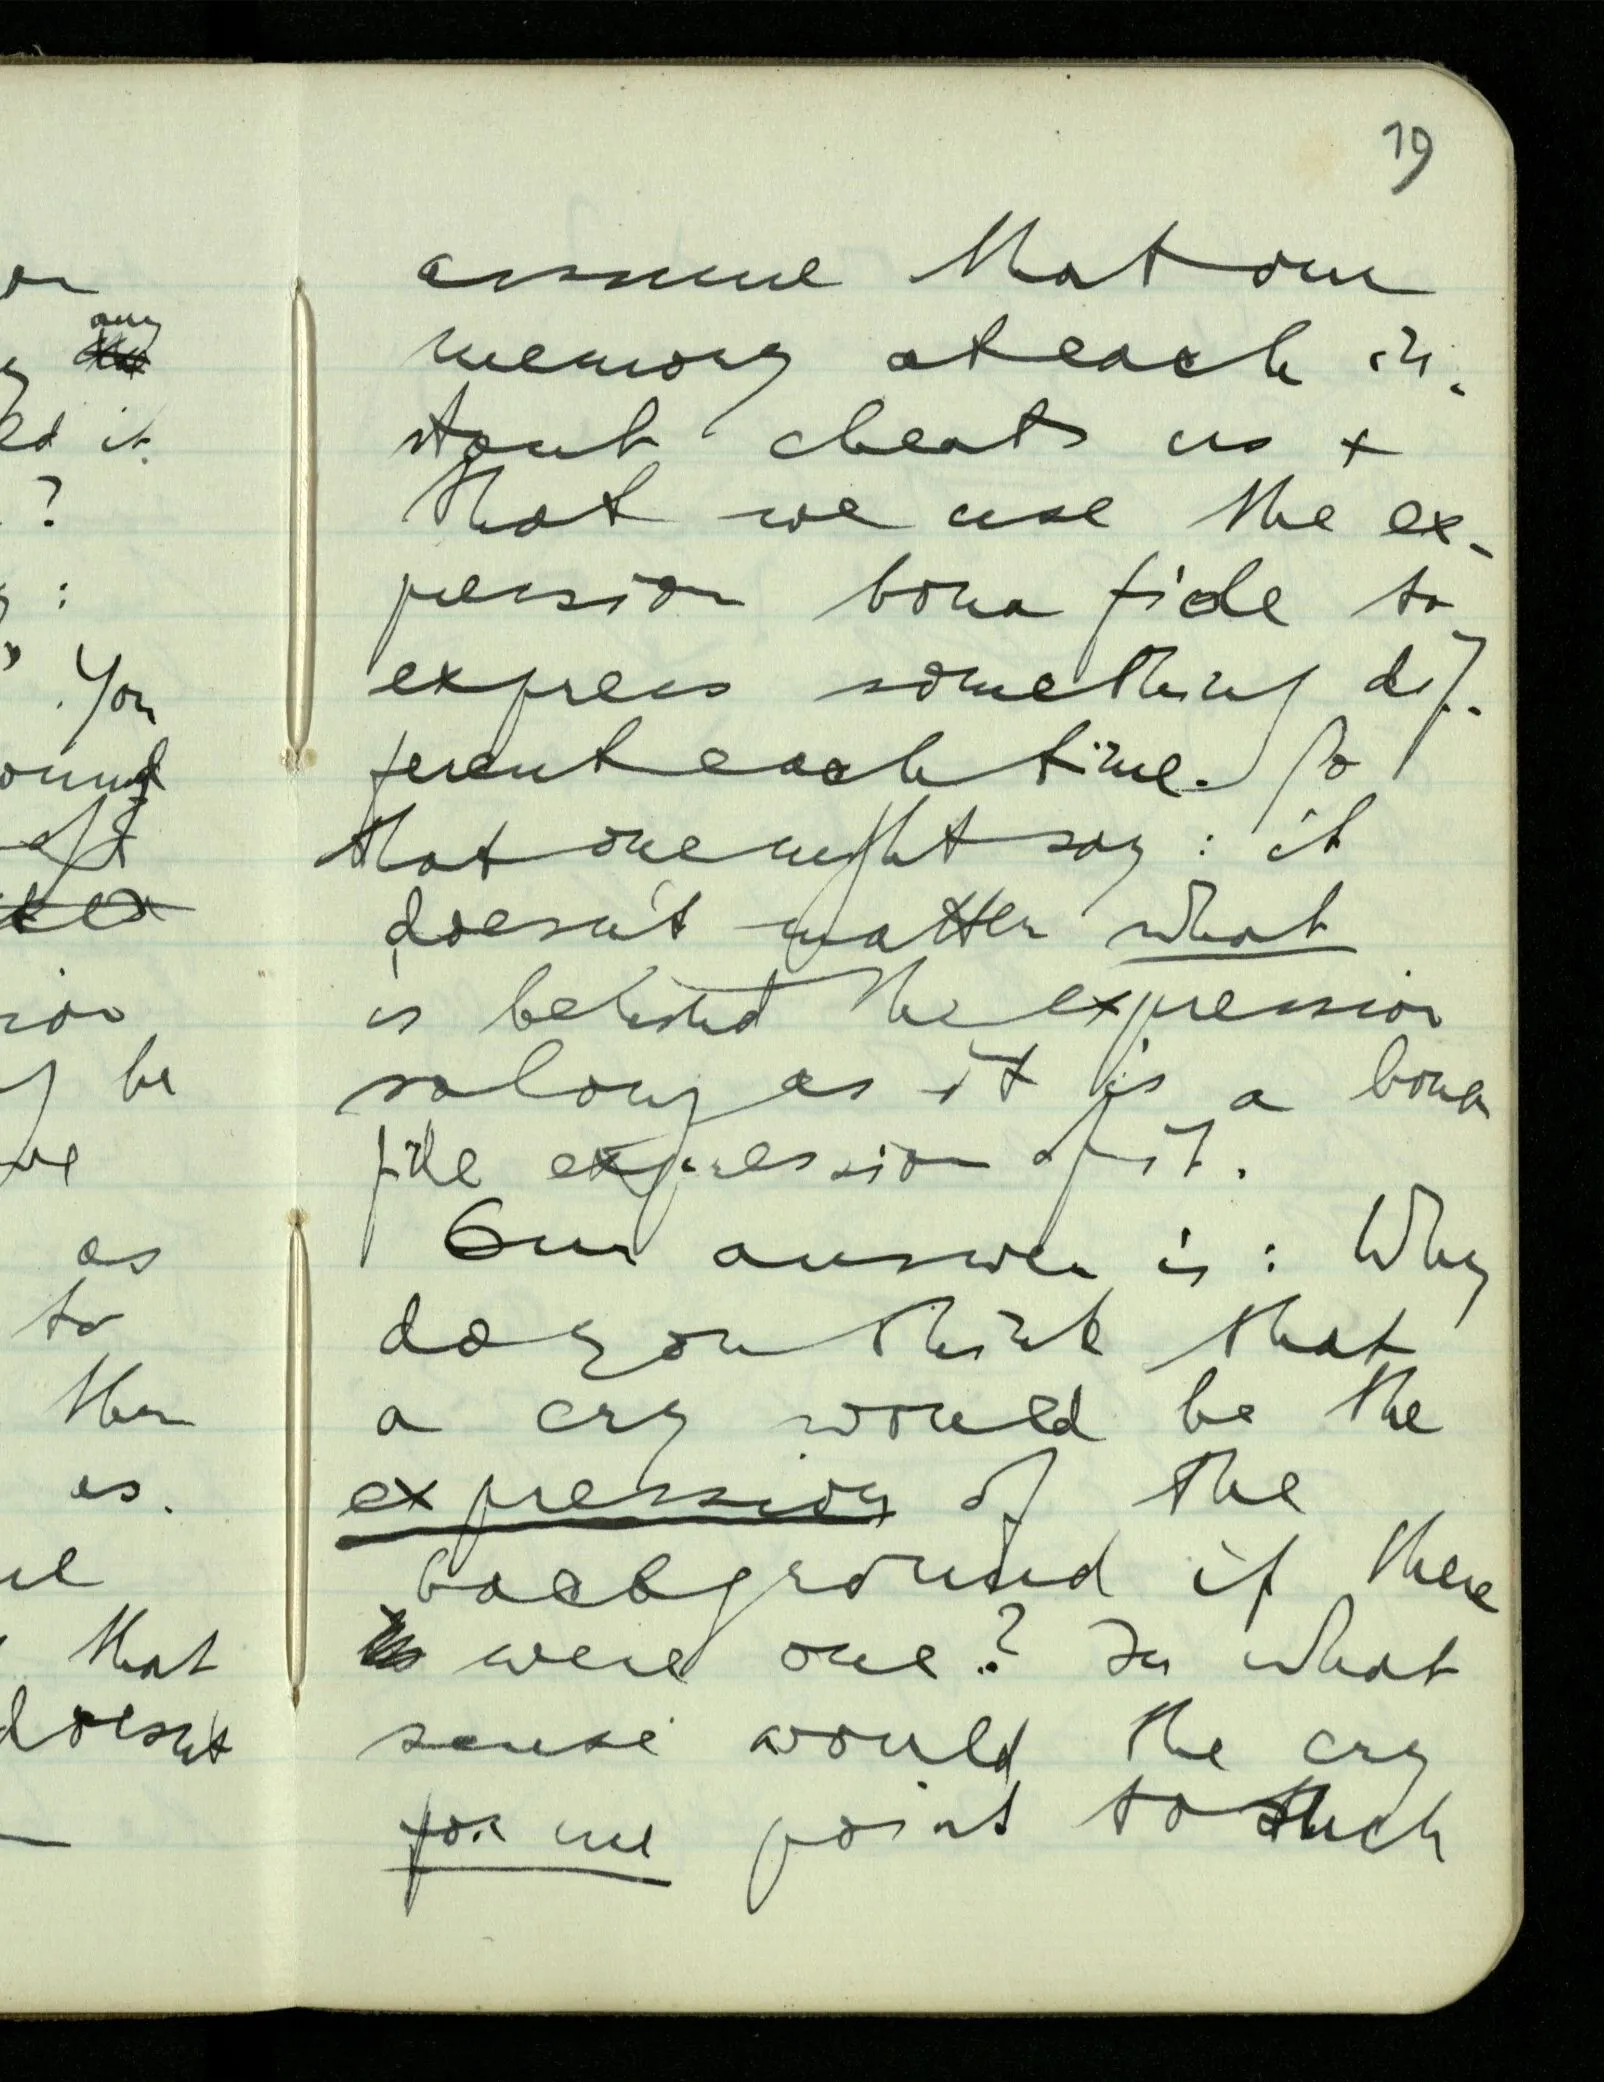 19
assume that our
memory at each in-
stant cheats us +
that we use the ex-
pression bona fide to
express something dif-
ferent each time. So
that one might say : it
doesn't matter what
is behind the expression
so long as it is a bona
fide expression of it.
Our answer is : Why
do you think that
a cry would be the
expression of the
background if there
were one? In what
sense would the cry
for me point to such
any
ed it.
?
:
You
ound
of it
sion
be
as
to
then
us.
that
doesn't